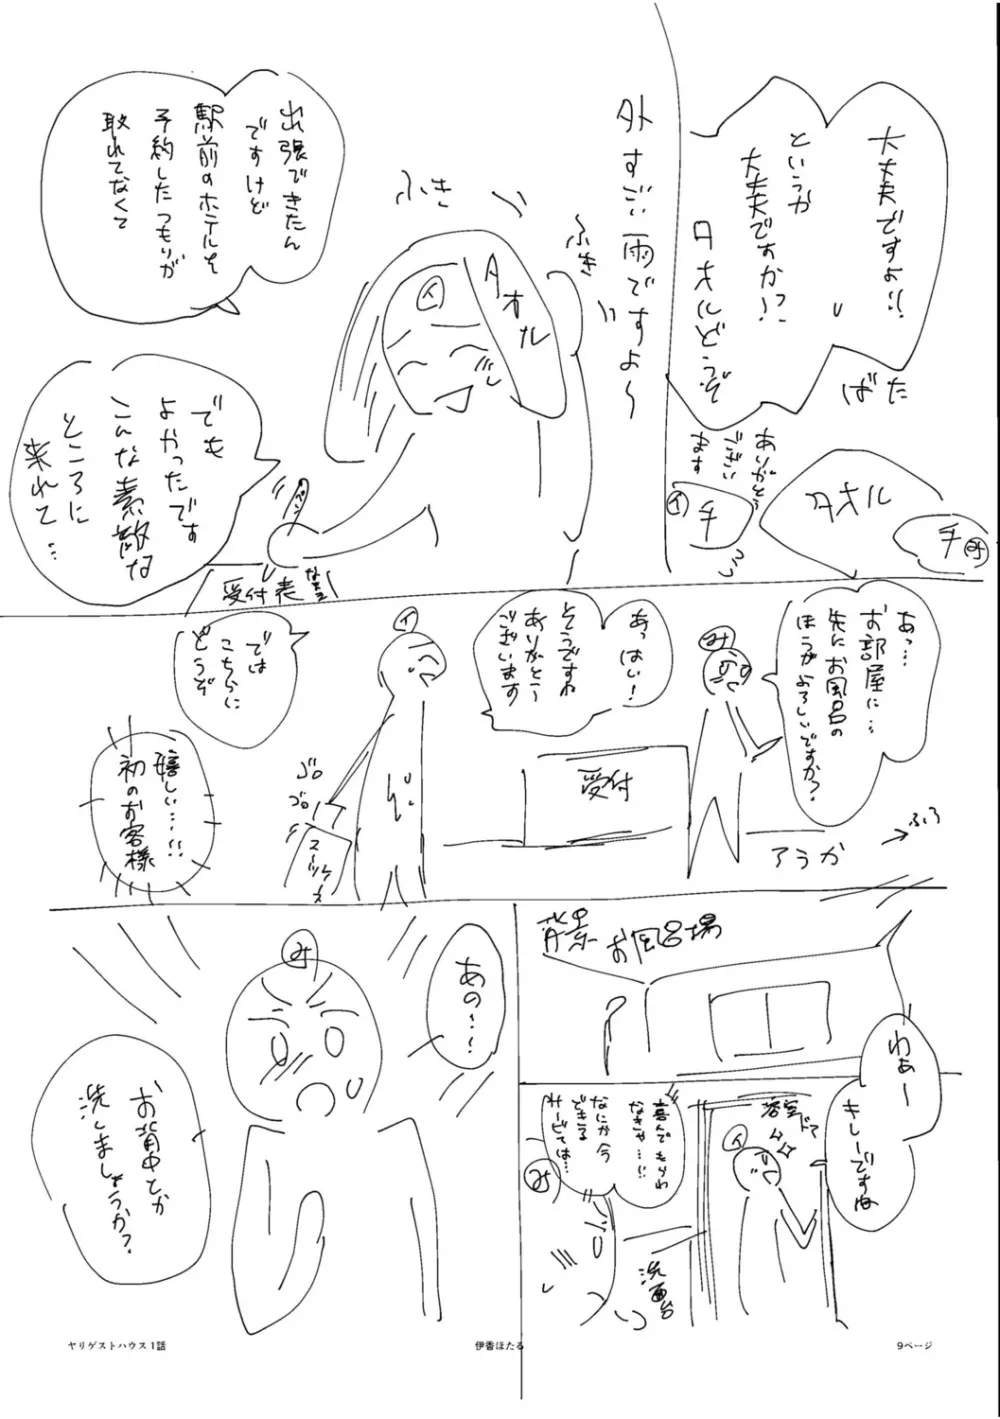 大丈夫ですよ!!
というか
大丈夫ですか!?
タオルどうぞ
ばた
タオル
手
み
ありがとう
ござい
ます
イ
手
外すごい雨ですよ〜
ふき
ふき
タオル
イ
出張できたん
ですけど
駅前のホテルを
予約したつもりが
取れてなくて
でも
よかったです
こんな素敵な
ところに
来れて…
ペン
受付表
など
あっ…
お部屋に…
先にお風呂の
ほうがよろしいですか?
み
ふろ
ろうか
あっはい!
そうですね
ありがとう
ございます
受付
イ
では
こちらに
どうぞ
ゴロ
ゴロ
スーツケース
嬉しい…!!
初のお客様
背景
お風呂場
わぁー
キレーですね
浴室
ドア
イ
喜んでもらわ
なきゃ…!!
なにか今
できる
サービスは…
み
洗面台
あの…!
み
お背中とか
洗しましょうか?
ヤリゲストハウス1話
伊香ほたる
9ページ